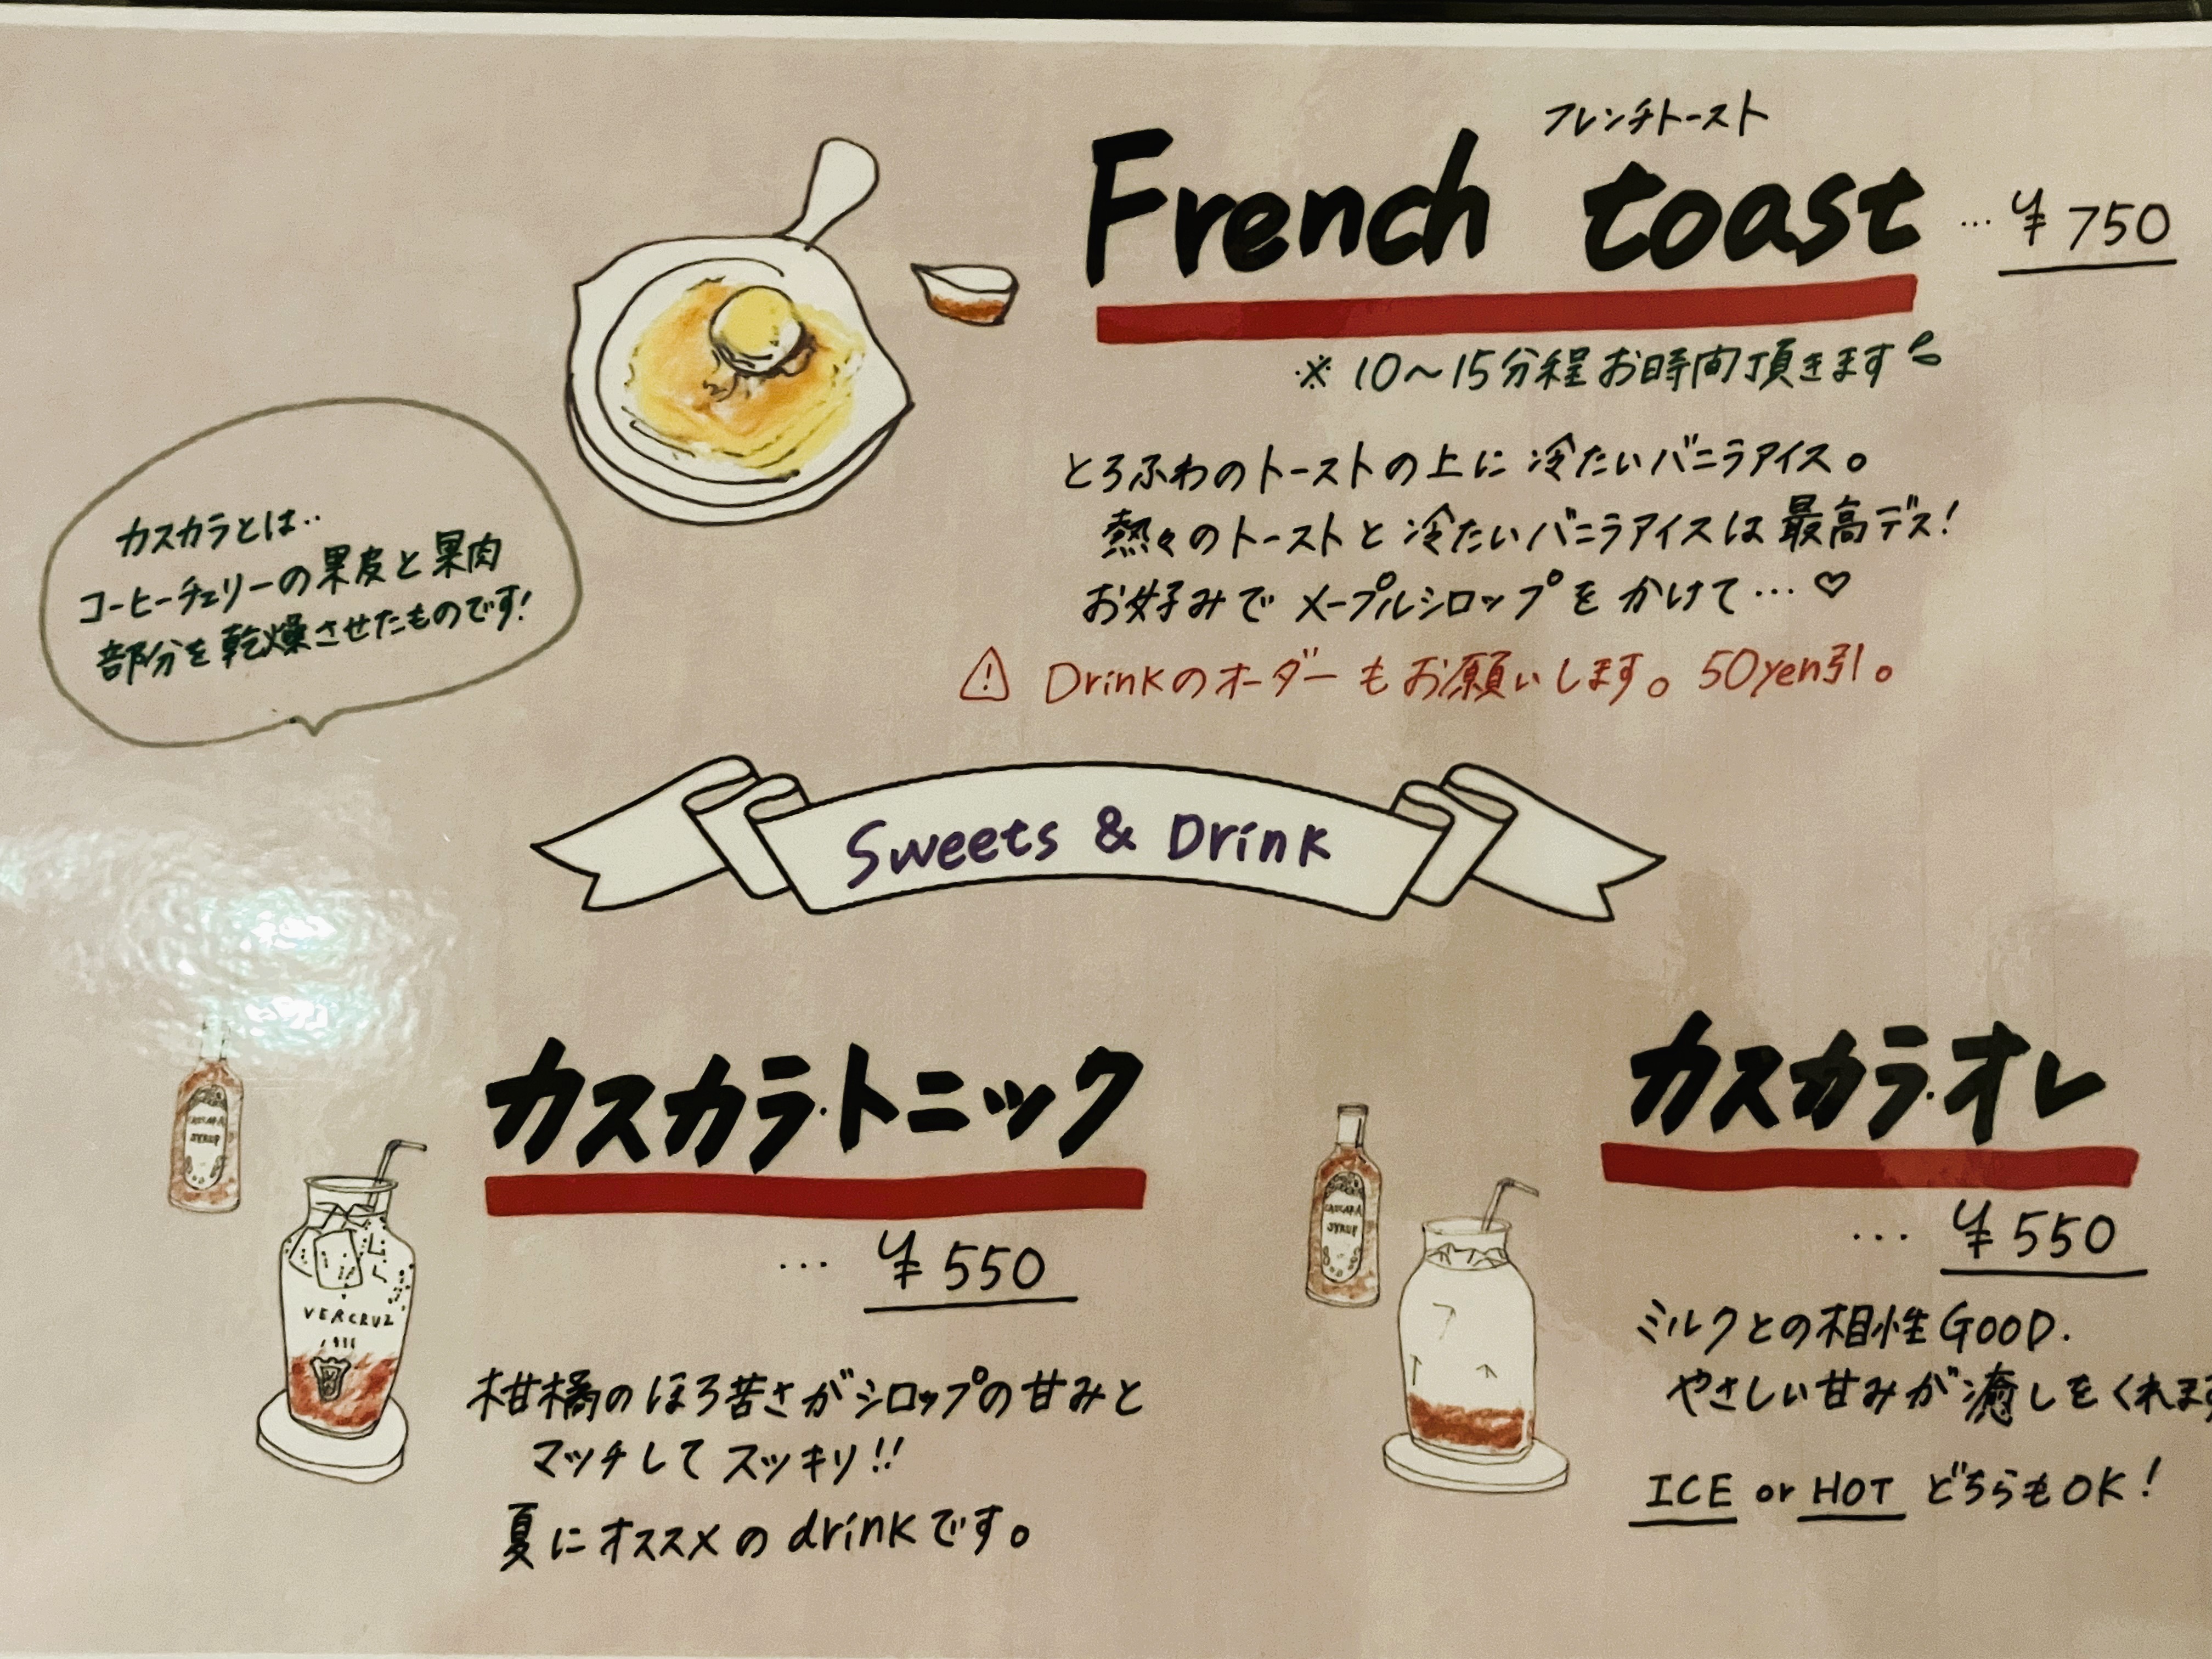 フレンチトースト
French toast … ¥750
※10〜15分程お時間頂きます
とろふわのトーストの上に冷たいバニラアイス。
熱々のトーストと冷たいバニラアイスは最高デス!
お好みでメープルシロップをかけて…♡
⚠ Drinkのオーダーもお願いします。50yen引。
カスカラとは‥
コーヒーチェリーの果皮と果肉
部分を乾燥させたものです!
Sweets & Drink
カスカラ・トニック
… ¥550
柑橘のほろ苦さがシロップの甘みと
マッチしてスッキリ!!
夏にオススメのdrinkです。
SYRUP
VERCRUZ
カスカラ・オレ
… ¥550
ミルクとの相性GOOD.
やさしい甘みが癒しをくれます
ICE or HOT どちらもOK!
CASCARA
SYRUP